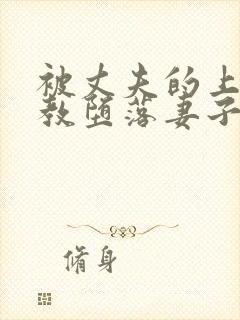 被丈夫的上
教堕落妻子
脩身